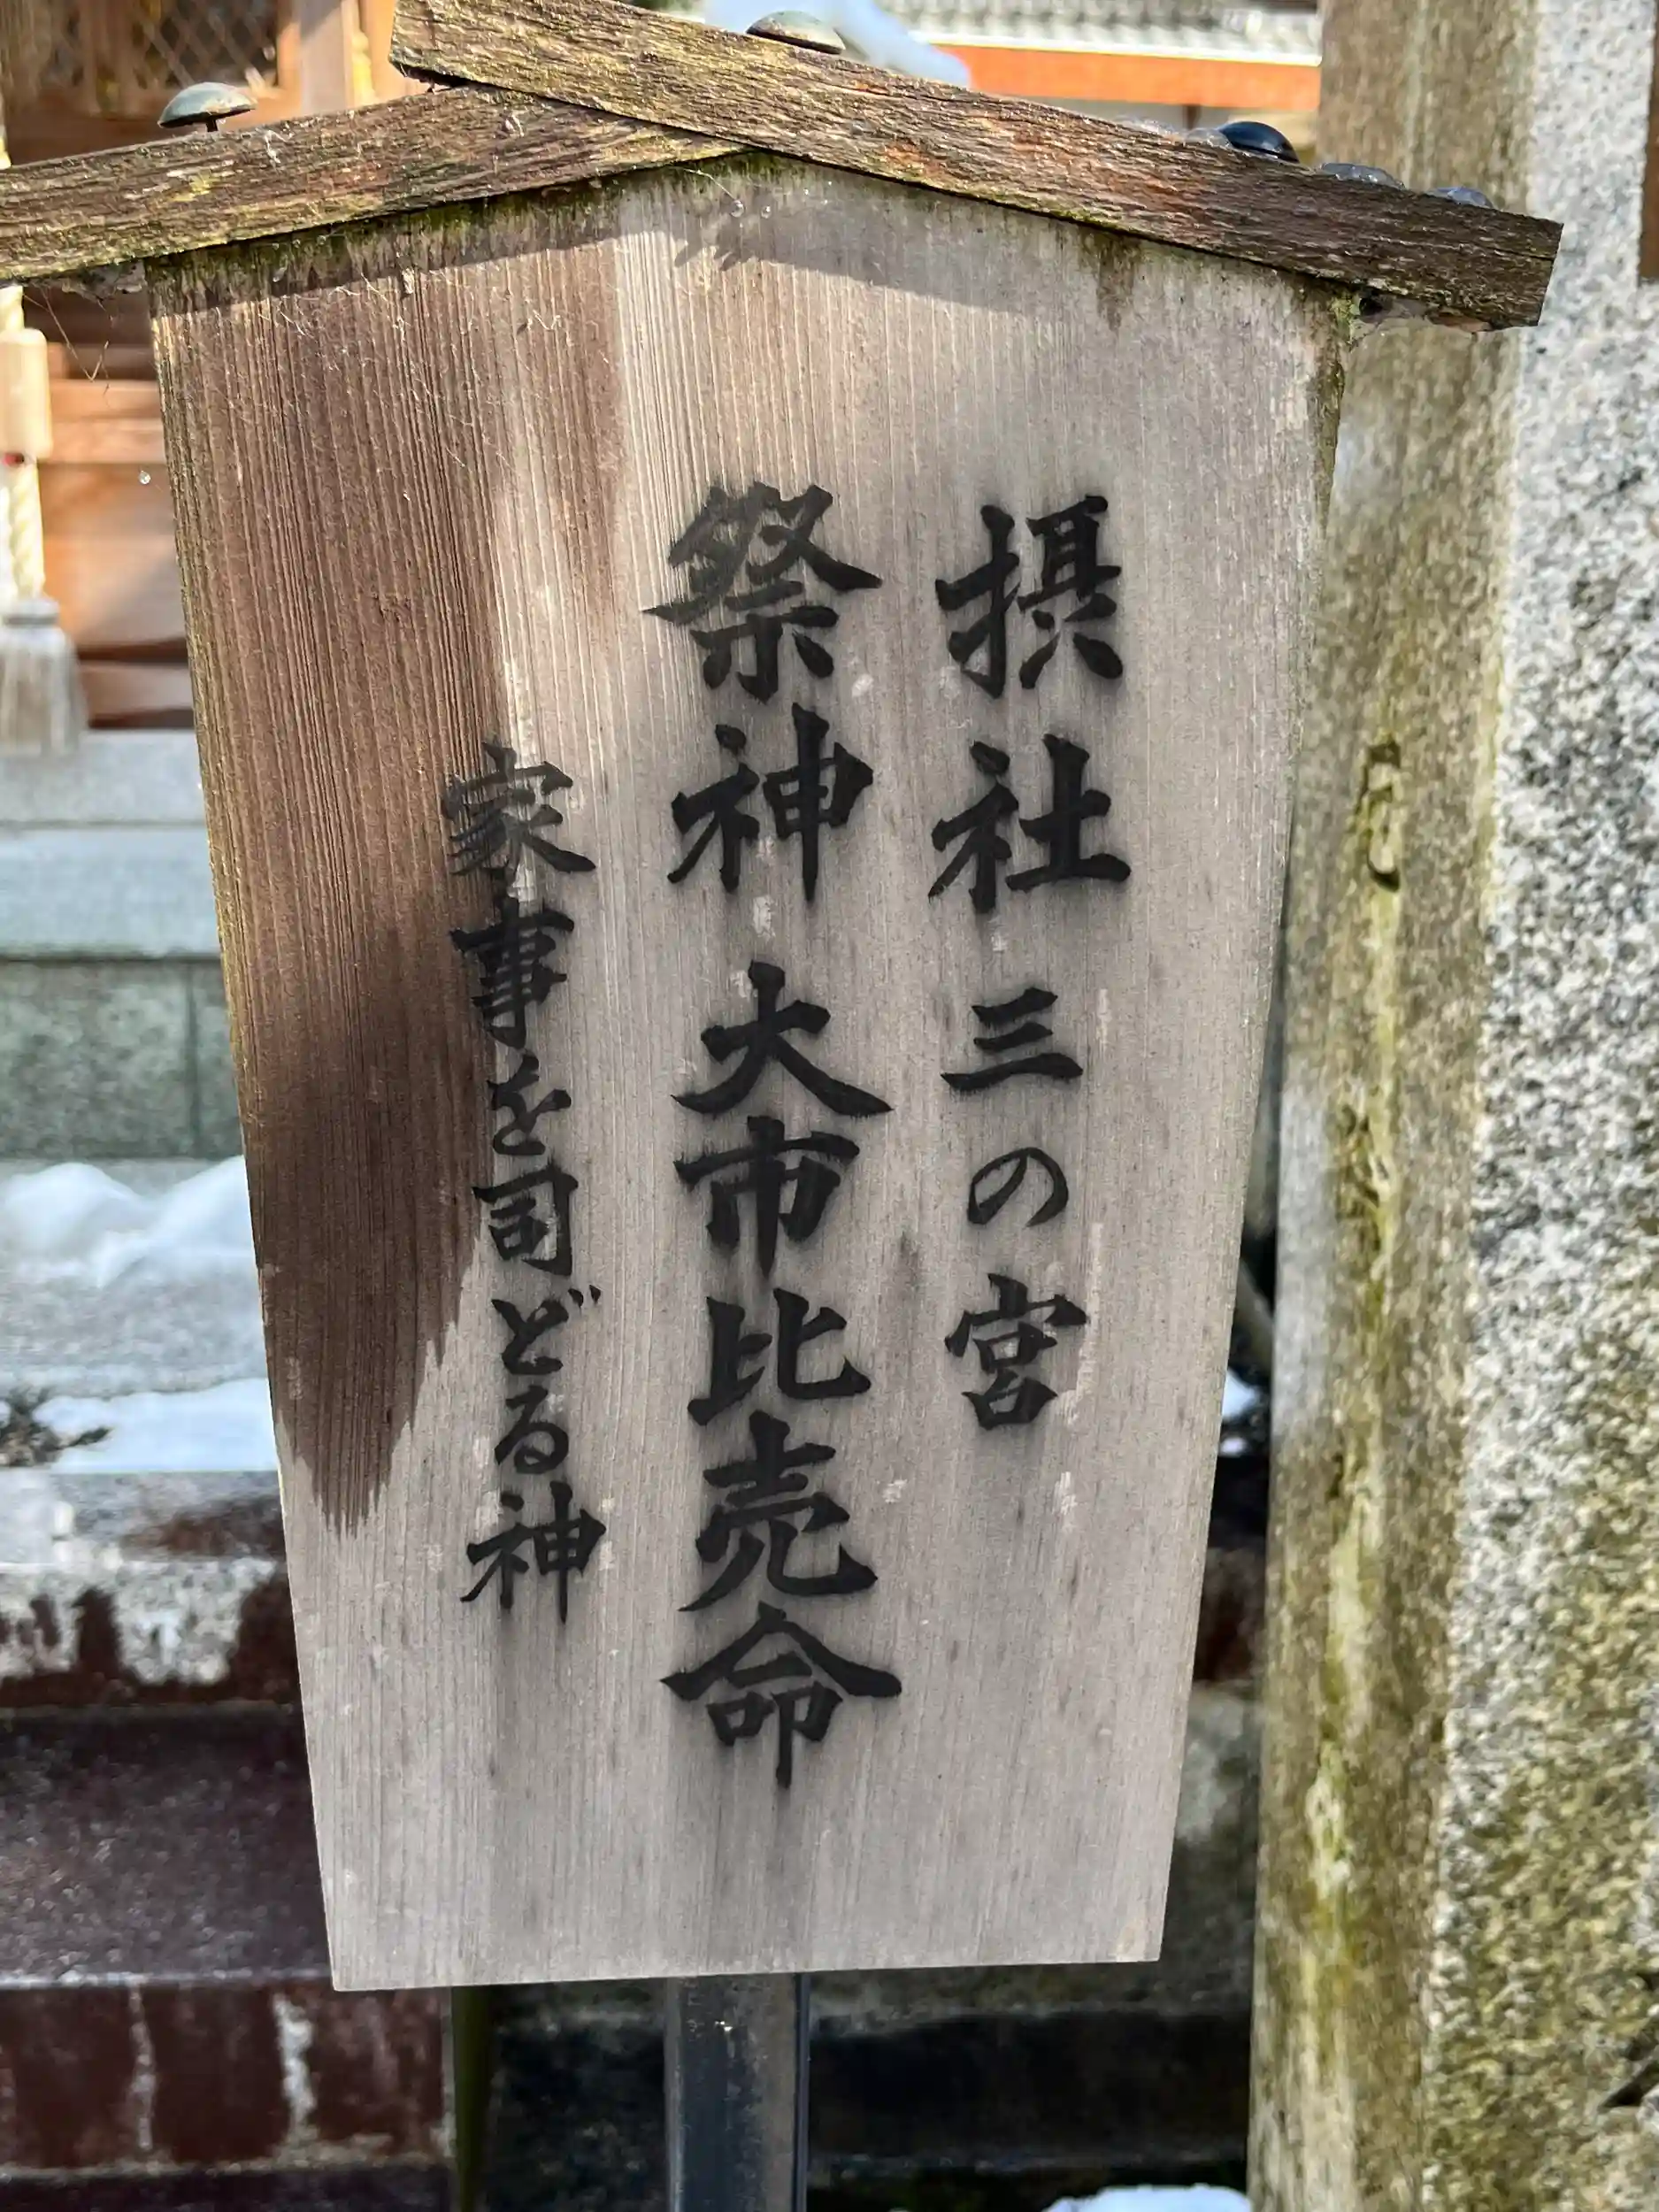 摂社 三の宮
祭神 大市比売命
家事を司どる神